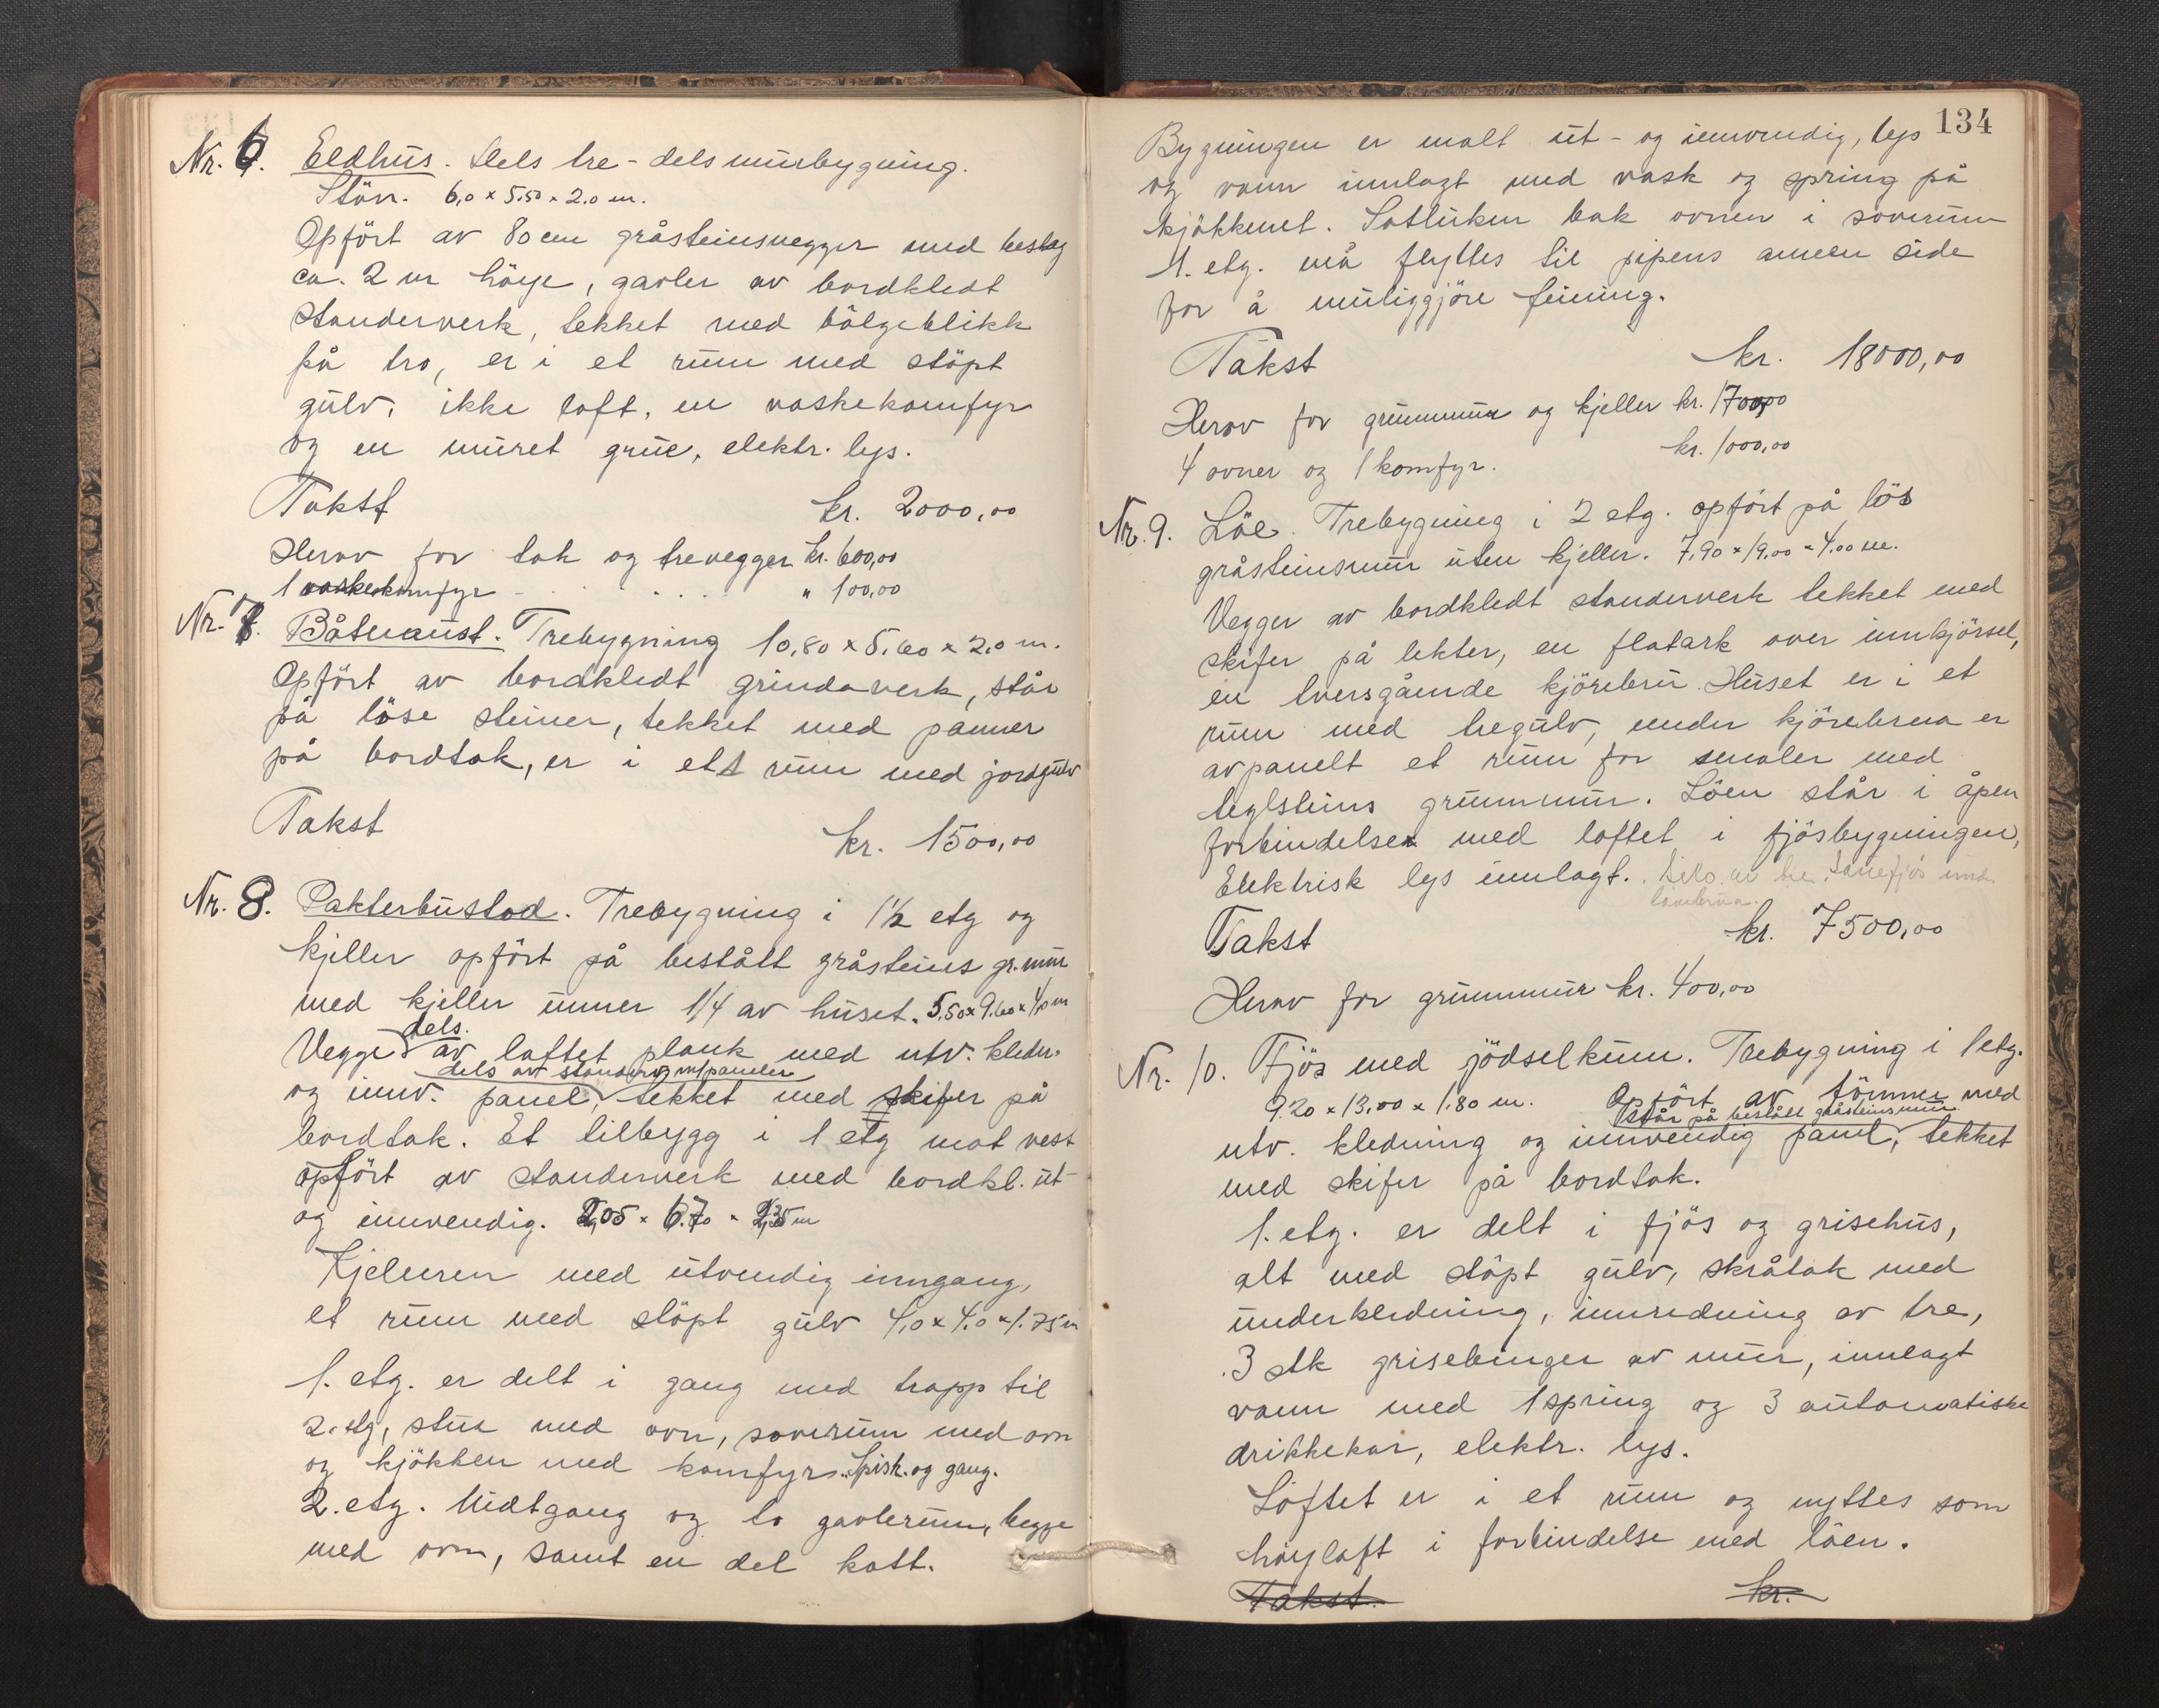 Nr. 6. Eldhus. Dels tre-dels murbygning.
Störr. 6,0 x 5.50 x 2.0 m.
Opfört av 80 cm gråsteinsvegger med beslag
ca. 2 m höye, gavler av bordkledt
standerverk, tekket med bölgeblikk
på tro, er i et rum med stöpt
gulv, ikke loft, en vaskekomfyr
og en muret grue, elektr. lys.
Takst kr. 2000,00
Herav for tak og trevegger kr. 600,00
1 vaskekomfyr - . . . . . " 100,00
Nr. 7. Båtnaust. Trebygning 10,80 x 5,60 x 2,0 m.
Opfört av bordkledt grindaverk, står
på löse steiner, tekket med panner
på bordtak, er i ett rum med jordgulv
Takst kr. 1500,00
Nr. 8. Pakterbustad. Trebygning i 1½ etg og
kjeller opfört på bestått gråsteins gr.mur
med kjeller unner 1/4 av huset. 5,50 x 9,60 x 4,0 m
dels.
Vegge av laftet plank med utv. kledn.
dels av standerv. m/paneler
og innv. panel, tekket med skifer på
bordtak. Et tilbygg i 1 etg mot vest
opfört av standerverk med bordkl. ut-
og innvendig. 2,05 x 6.70 x 2,35 m
Kjelleren med utvendig inngang,
et rum med stöpt gulv 4,0 x 4,0 x 1.75 m
1. etg. er delt i gang med trapp til
2. etg, stue med ovn, soverum med ovn
og kjökken med komfyr. Spisk. og gang.
2. etg. Midtgang og to gavlerum, begge
med ovn, samt en del kott.
134
Bygningen er malt ut- og innvendig, lys
og vann innlagt med vask og spring på
kjökkenet. Sotluken bak ovnen i soverum
1. etg. må flyttes til pipens annen side
for å muliggjöre feining.
Takst kr. 18000,00
Herav for grunnmur og kjeller kr. 1700,00
4 ovner og 1 komfyr. kr. 1000,00
Nr. 9. Löe. Trebygning i 2 etg. opfört på lös
gråsteinsmur uten kjeller. 7,90 x 19,00 x 4,00 m.
Vegger av bordkledt standerverk tekket med
skifer på lekter, en flatark over innkjörsel,
en tversgående kjörebru. Huset er i et
rum med tregulv, under kjörebrua er
avpanelt et rum for smaler med
teglsteins grunnmur. Löen står i åpen
forbindelse med loftet i fjösbygningen,
Elektrisk lys innlagt. Silo av tre. Sauefjös und.
låvebrua.
Takst kr. 7500,00
Herav for grunnmur kr. 400,00
Nr. 10. Fjös med gjödselkum. Trebygning i 1 etg.
9.20 x 13,00 x 1.80 m. Opfört av tömmer med
står på bestått gråsteinsmur
utv. kledning og innvendig panel, tekket
med skifer på bordtak.
1. etg. er delt i fjös og grisehus,
alt med stöpt gulv, skråtak med
underkledning, innredning av tre,
3 stk grisebinger av mur, innlagt
vann med 1 spring og 3 automatiske
drikkekar, elektr. lys.
Loftet er i et rum og nyttes som
höyloft i forbindelse med löen.
Takst. kr.